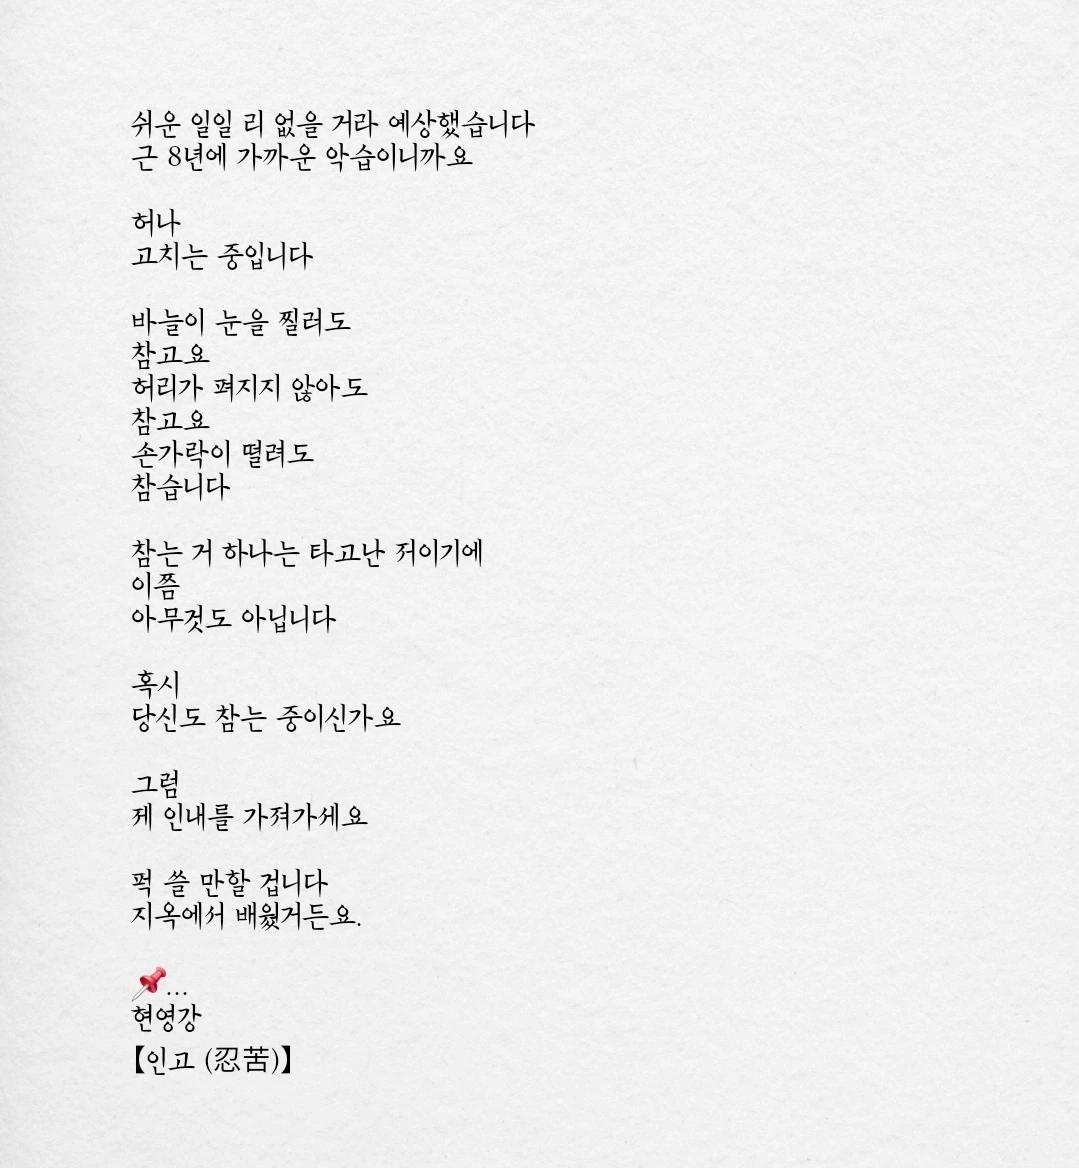 쉬운 일일 리 없을 거라 예상했습니다
근 8년에 가까운 악습이니까요
허나
고치는 중입니다
바늘이 눈을 찔러도
참고요
허리가 펴지지 않아도
참고요
손가락이 떨려도
참습니다
참는 거 하나는 타고난 저이기에
이쯤
아무것도 아닙니다
혹시
당신도 참는 중이신가요
그럼
제 인내를 가져가세요
퍽 쓸 만할 겁니다
지옥에서 배웠거든요.
📌...
현영강
【인고 (忍苦)】